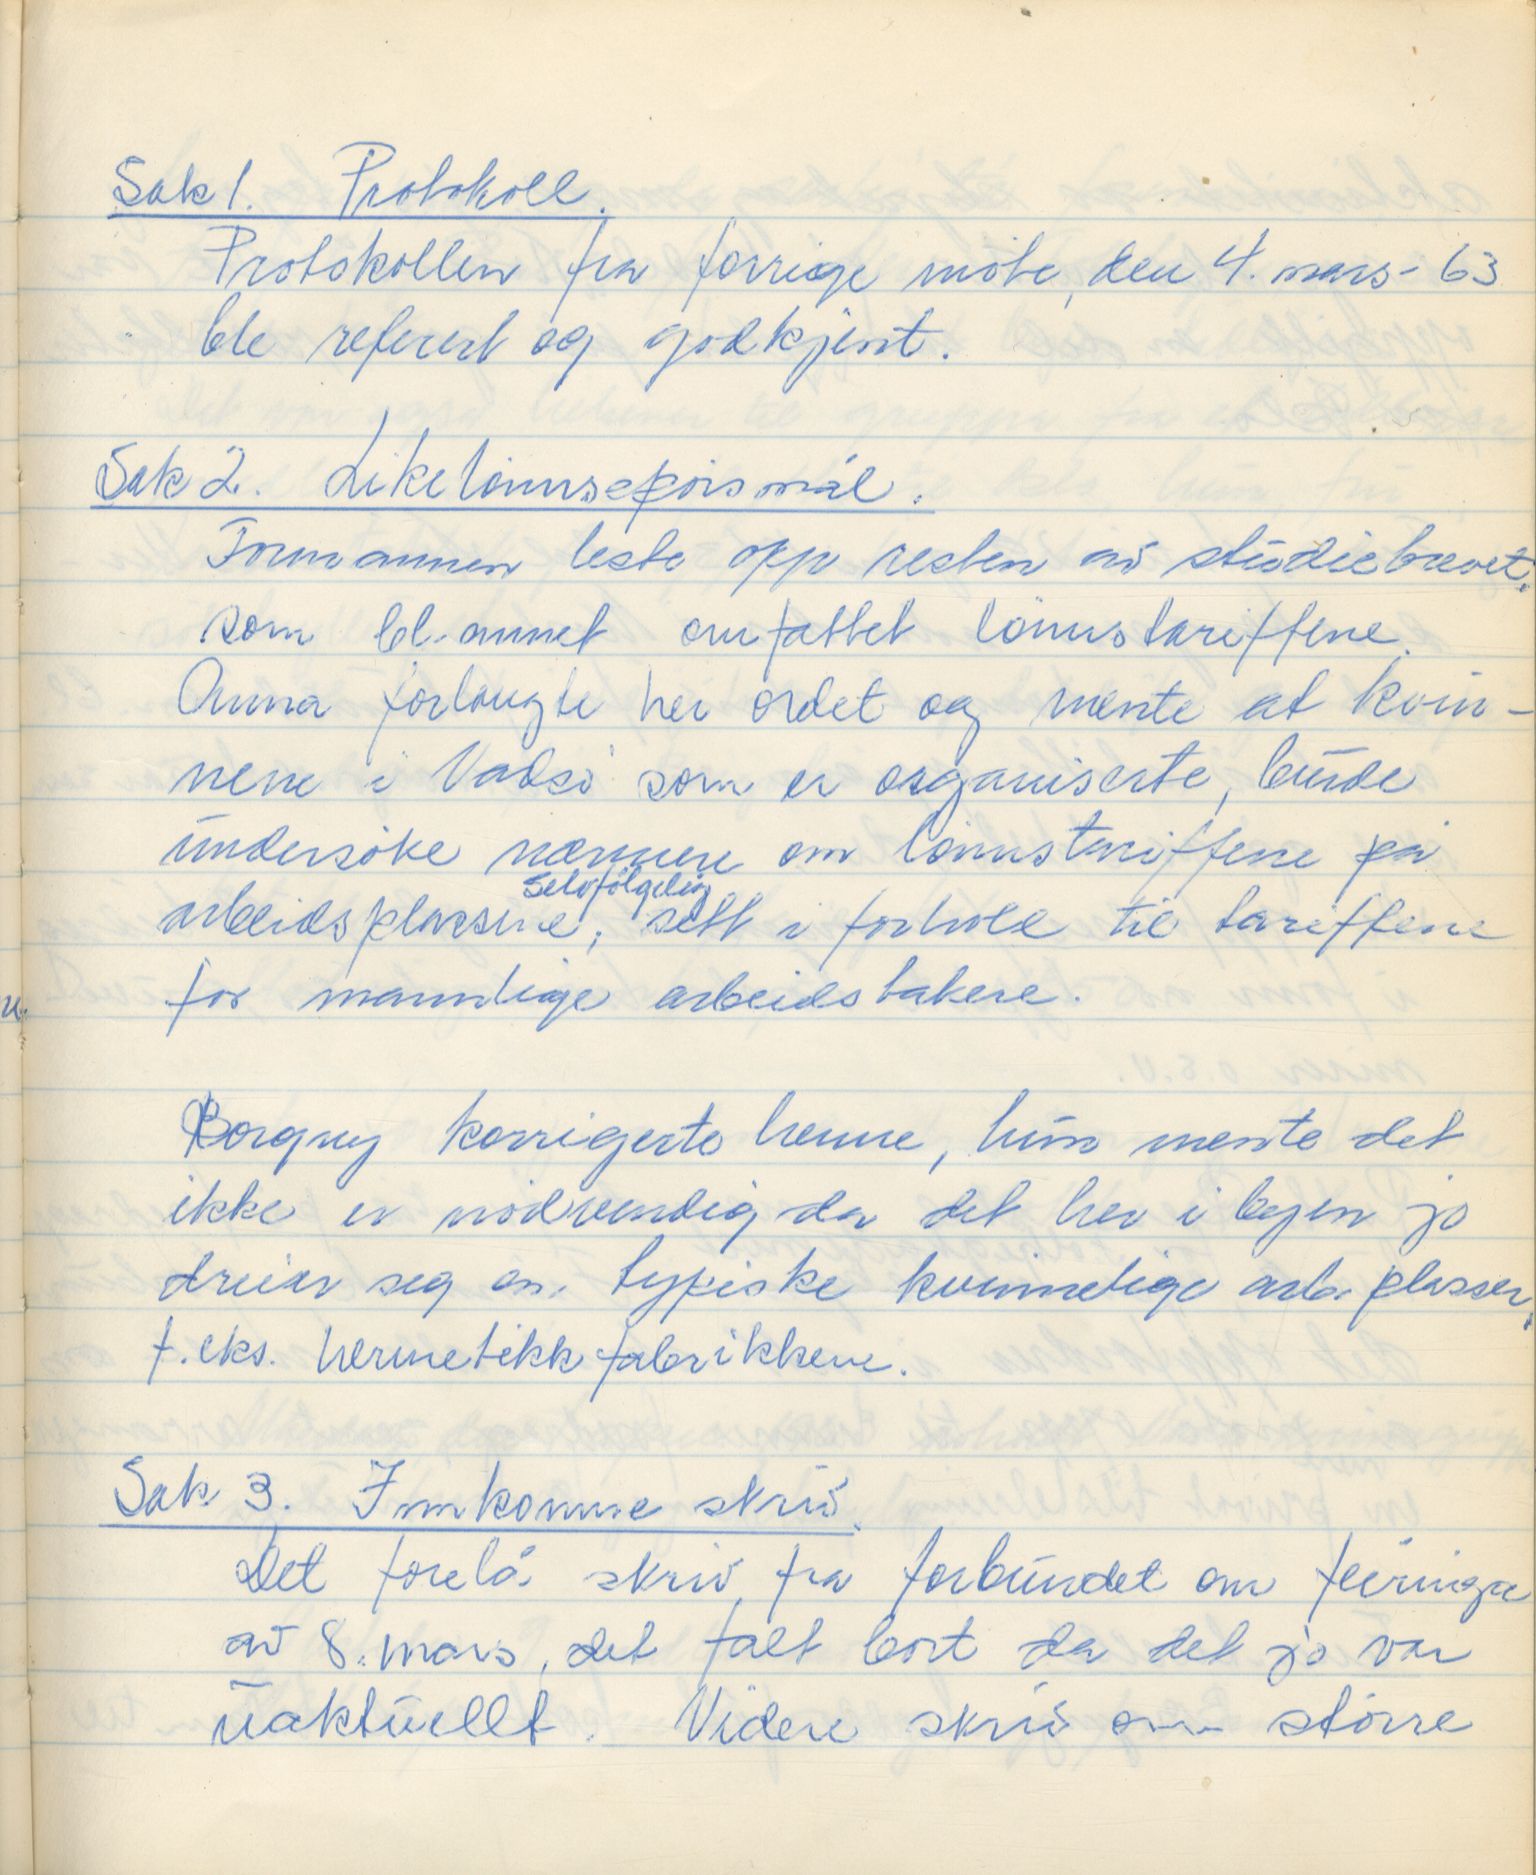 Sak 1. Protokoll.
Protokollen fra forrige møte, den 4. mars - 63
ble referert og godkjent.
Sak 2. Likelønnsspørsmål.
Formannen leste opp resten av studiebrevet,
som bl. annet omfattet lønnstariffene.
Anna forlangte her ordet og mente at kvin-
nene i Vadsø som er organiserte, burde
undersøke nærmere om lønnstariffene på
selvfølgelig
arbeidsplassene, sett i forhold til tariffene
for mannlige arbeidstakere.
Borgny korrigerte henne, hun mente det
ikke er nødvendig da det her i byen jo
dreier seg om typiske kvinnelige arb. plasser,
f.eks. hermetikkfabrikkene.
Sak 3. Innkomne skriv.
Det forelå skriv fra forbundet om feiringa
av 8. mars, det falt bort da det jo var
uaktuellt. Videre skriv om større